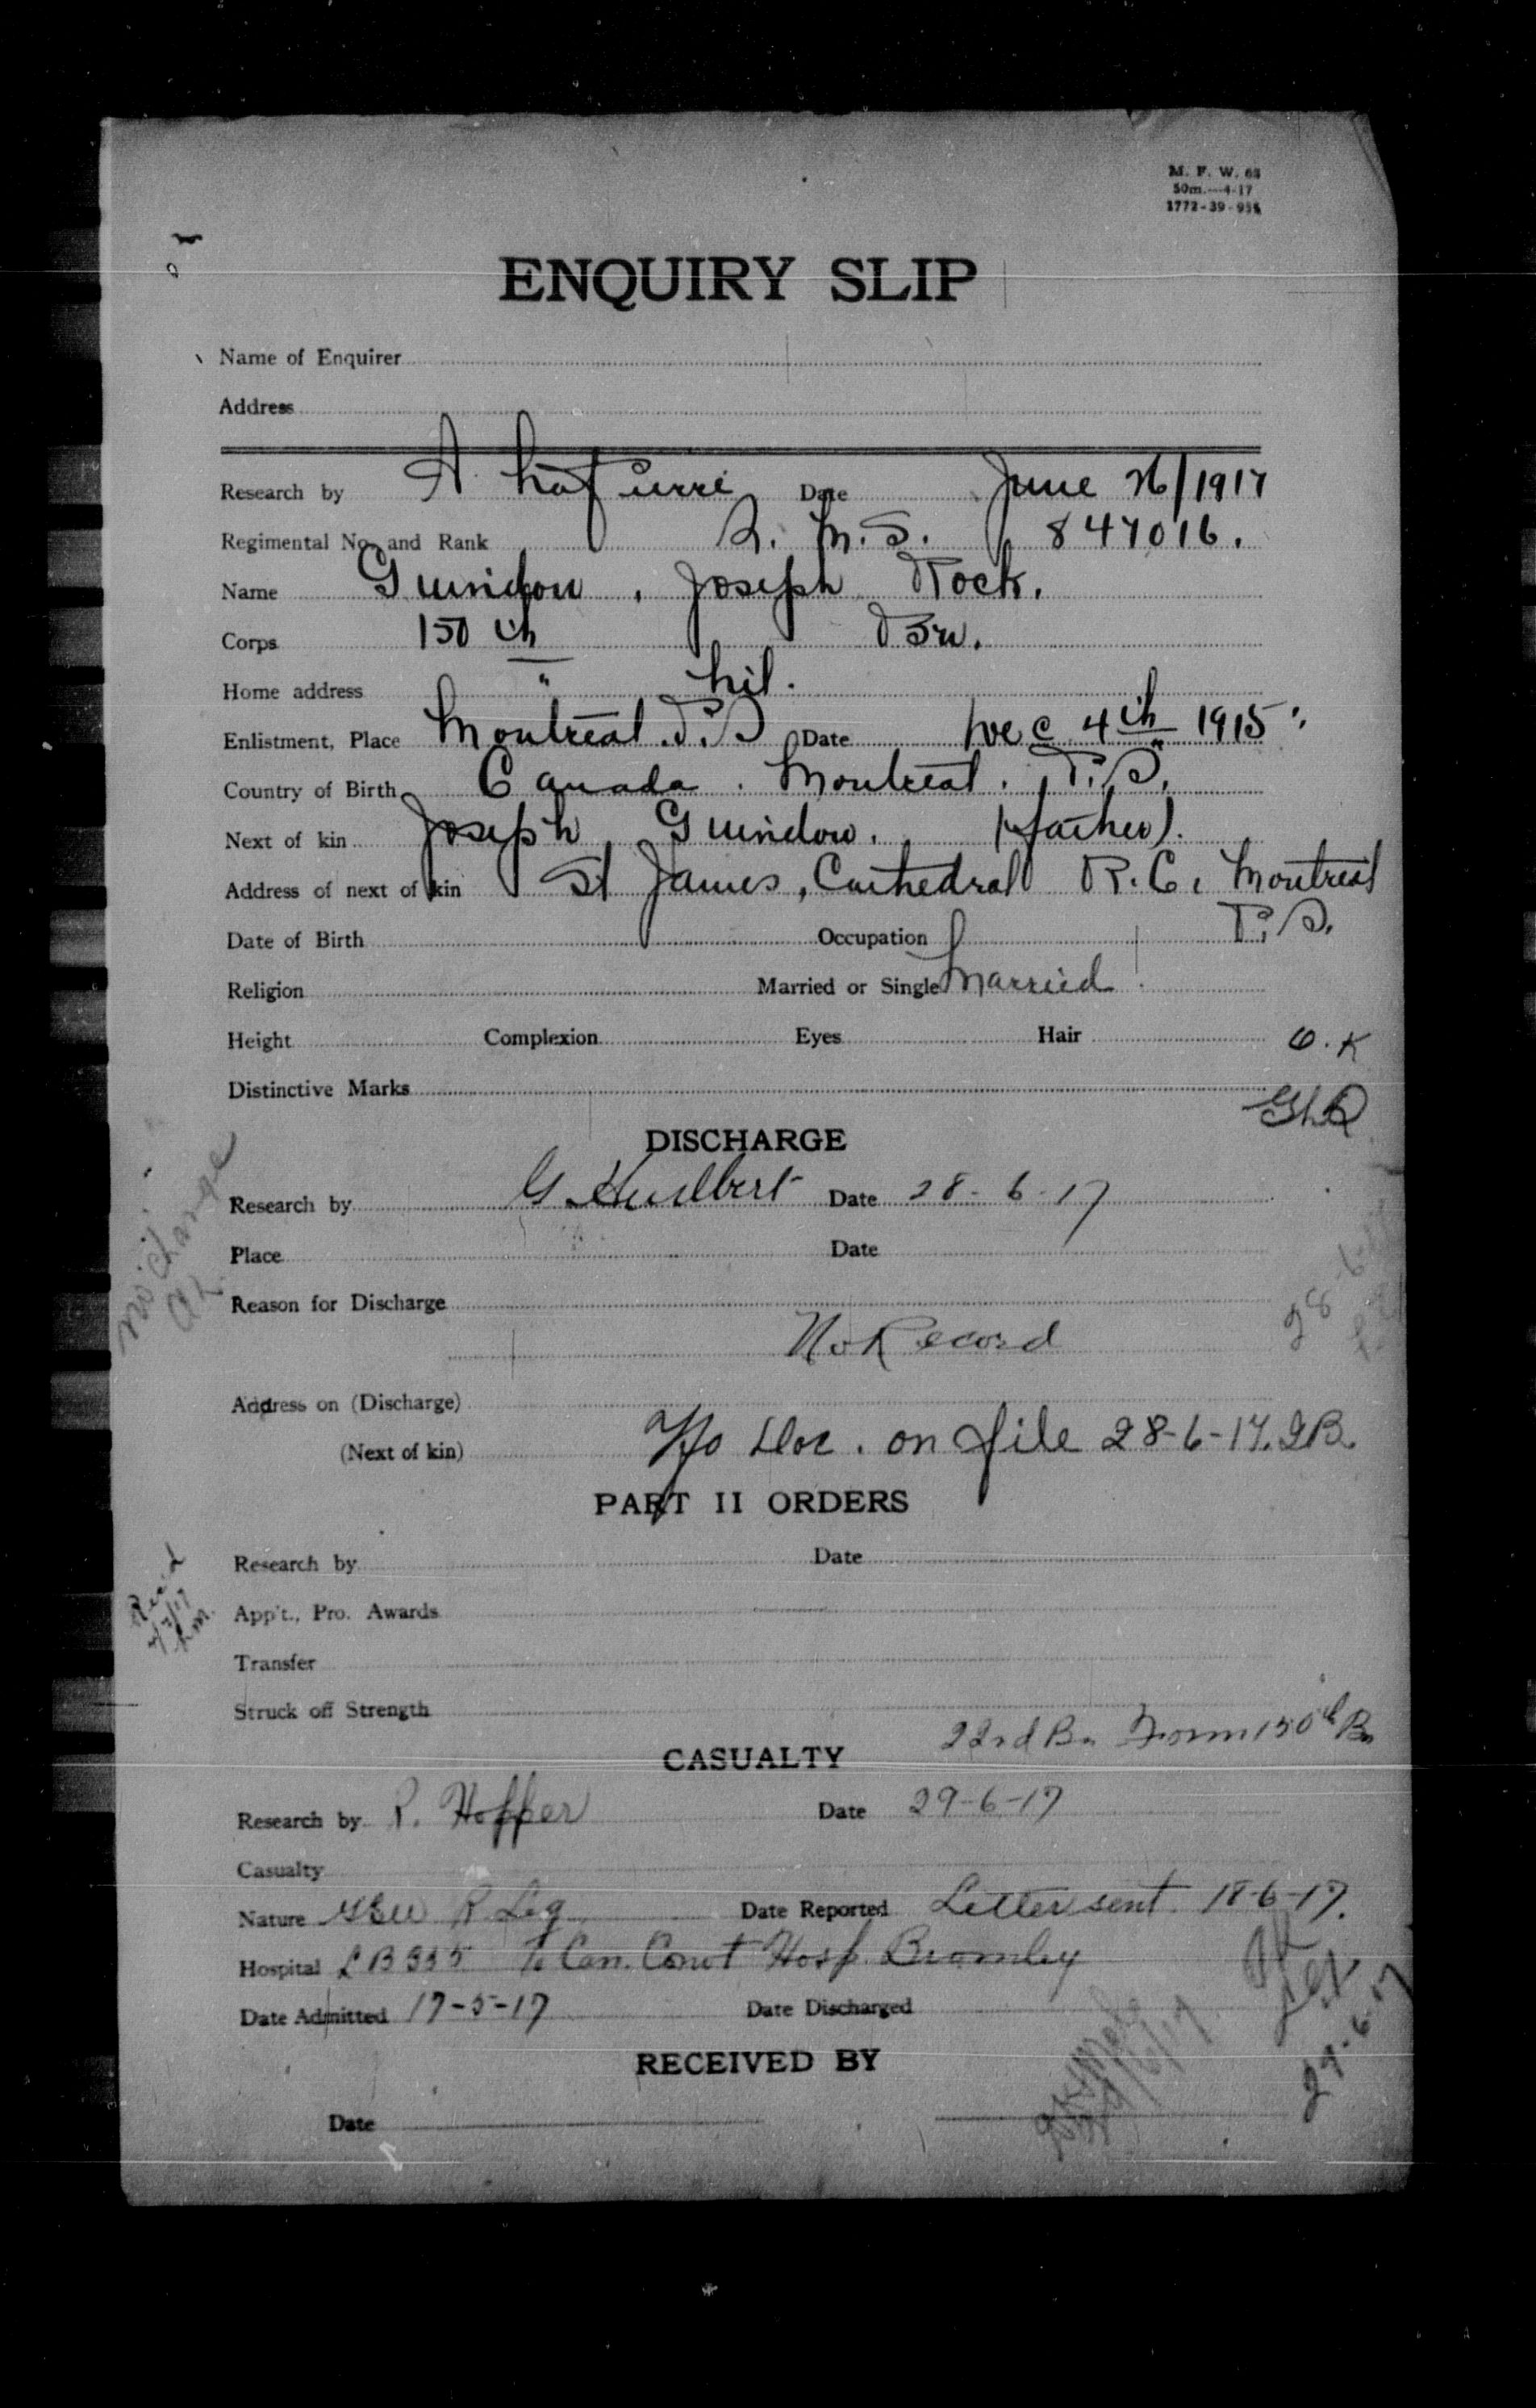 M. F. W. 68
50m.—4-17
1772-39-955
ENQUIRY SLIP
Name of Enquirer
Address
Research by A. Date June 26/1917
Regimental No. and Rank Q. M. S. 847016.
Name Guindon, Joseph Rock.
Corps 150th Bn.
Home address Nil.
Enlistment, Place Montreal. P.Q Date Dec 4th 1915
Country of Birth Canada. Montreal. P.Q.
Next of kin Joseph Guindon. (father).
Address of next of kin St James, Cathedral R.C. Montreal
P.Q.
Date of Birth Occupation
Religion Married or Single Married
Height Complexion Eyes Hair O.K
Distinctive Marks
DISCHARGE
no change
Research by G. Hurlbert Date 28-6-17
Place Date
Reason for Discharge
No Record
Address on (Discharge)
(Next of kin) No Doc. on file 28-6-17. J.B.
PART II ORDERS
Research by Date
Rec'd
App't., Pro. Awards
Transfer
Struck off Strength
22nd Bn Form 150th Bn
CASUALTY
Research by P. Hopper Date 29-6-17
Casualty
Nature GSW R. Leg Date Reported Letter sent. 18-6-17.
Hospital LB335 To Can. Conv't Hosp. Bromley
Date Admitted 17-5-17 Date Discharged
29-6-17
RECEIVED BY
Date